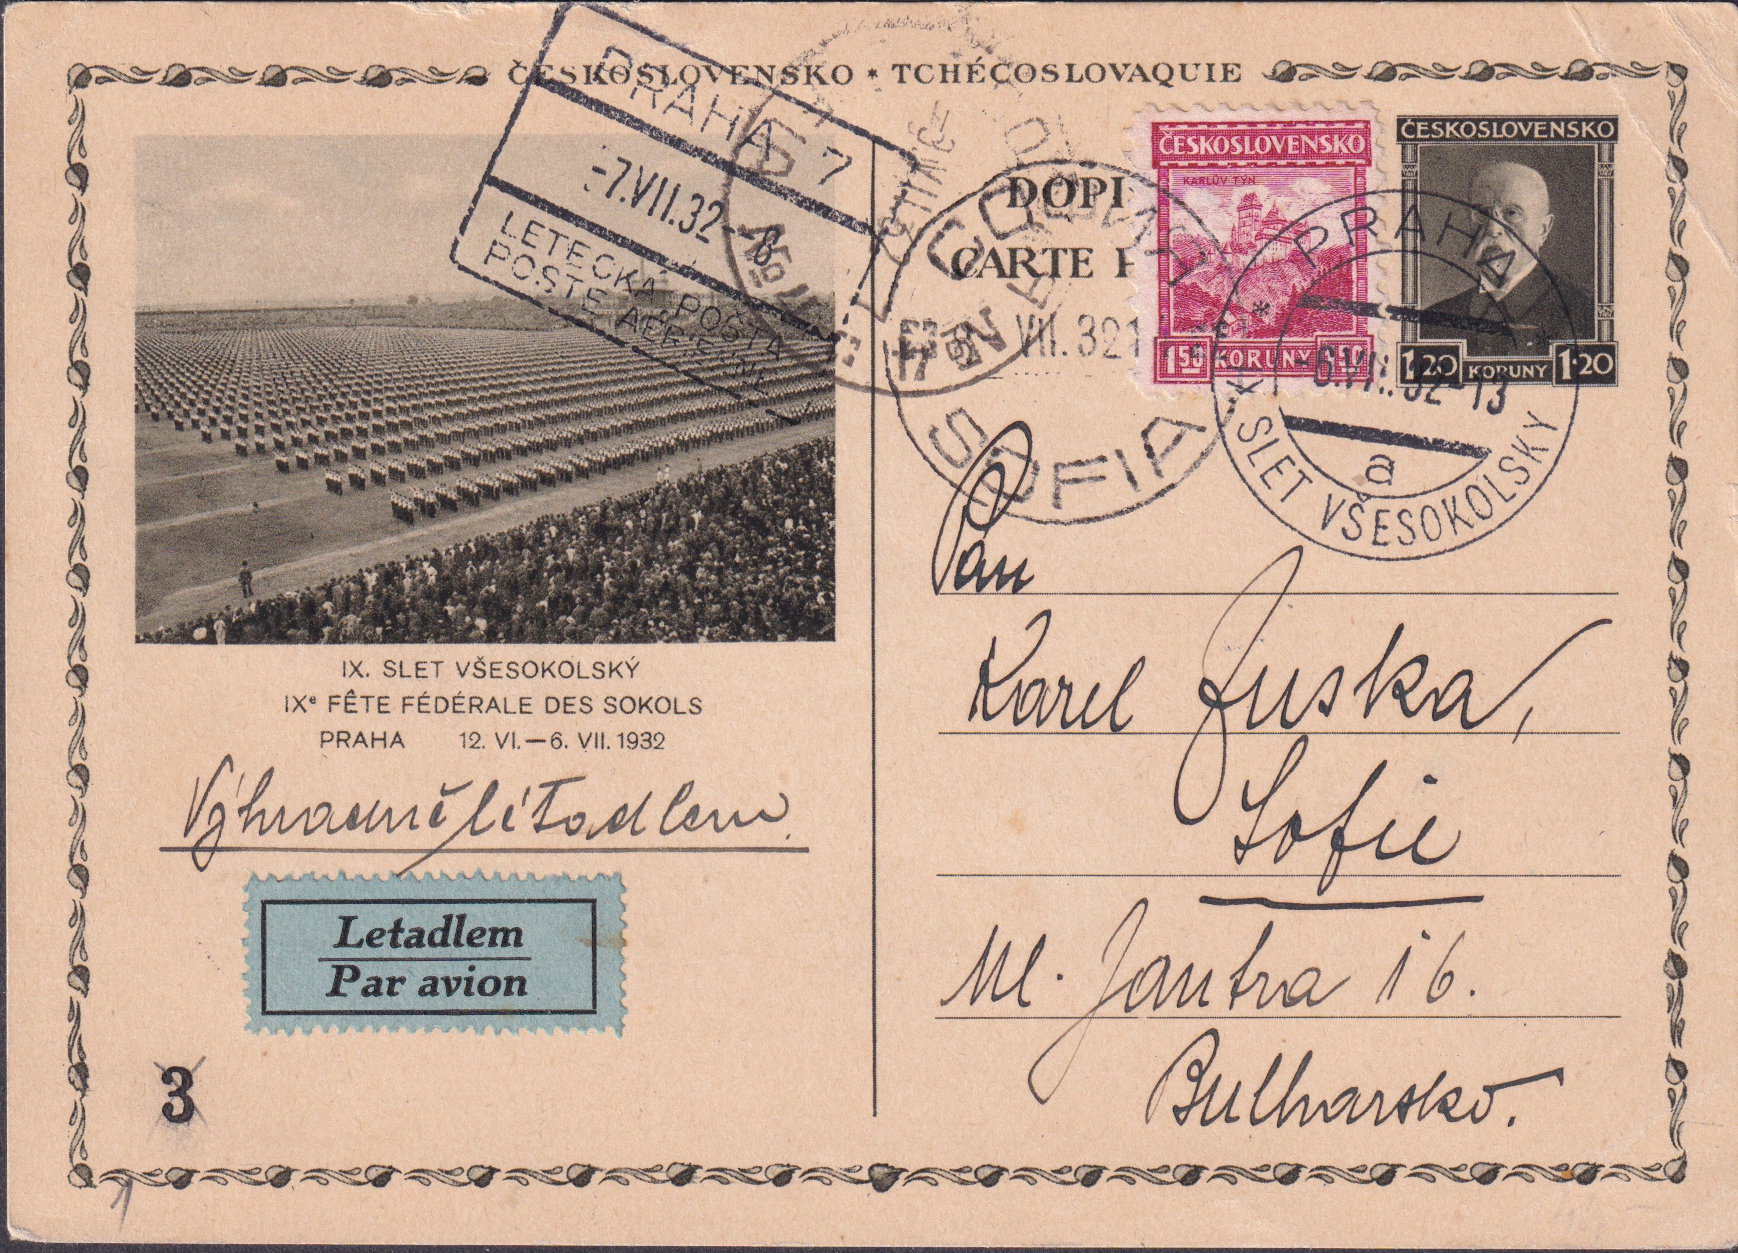 ČESKOSLOVENSKO * TCHÉCOSLOVAQUIE
PRAHA 7
-7.VII.32-8
LETECKÁ POŠTA
POSTE AÉRIENNE
DOPI
CARTE P
ČESKOSLOVENSKO
KARLŮV TÝN
1.50 KORUNY 1.50
ČESKOSLOVENSKO
1.20 KORUNY 1.20
PRAHA
-6.VII.32-13
a
SLET VŠESOKOLSKÝ
VII. 32
SOFIA
IX. SLET VŠESOKOLSKÝ
IXe FÊTE FÉDÉRALE DES SOKOLS
PRAHA 12. VI.—6. VII. 1932
Výhradně létadlem.
Letadlem
Par avion
3
Pan
Karel Juska,
Sofie
Ul. Jantra 16.
Bulharsko.